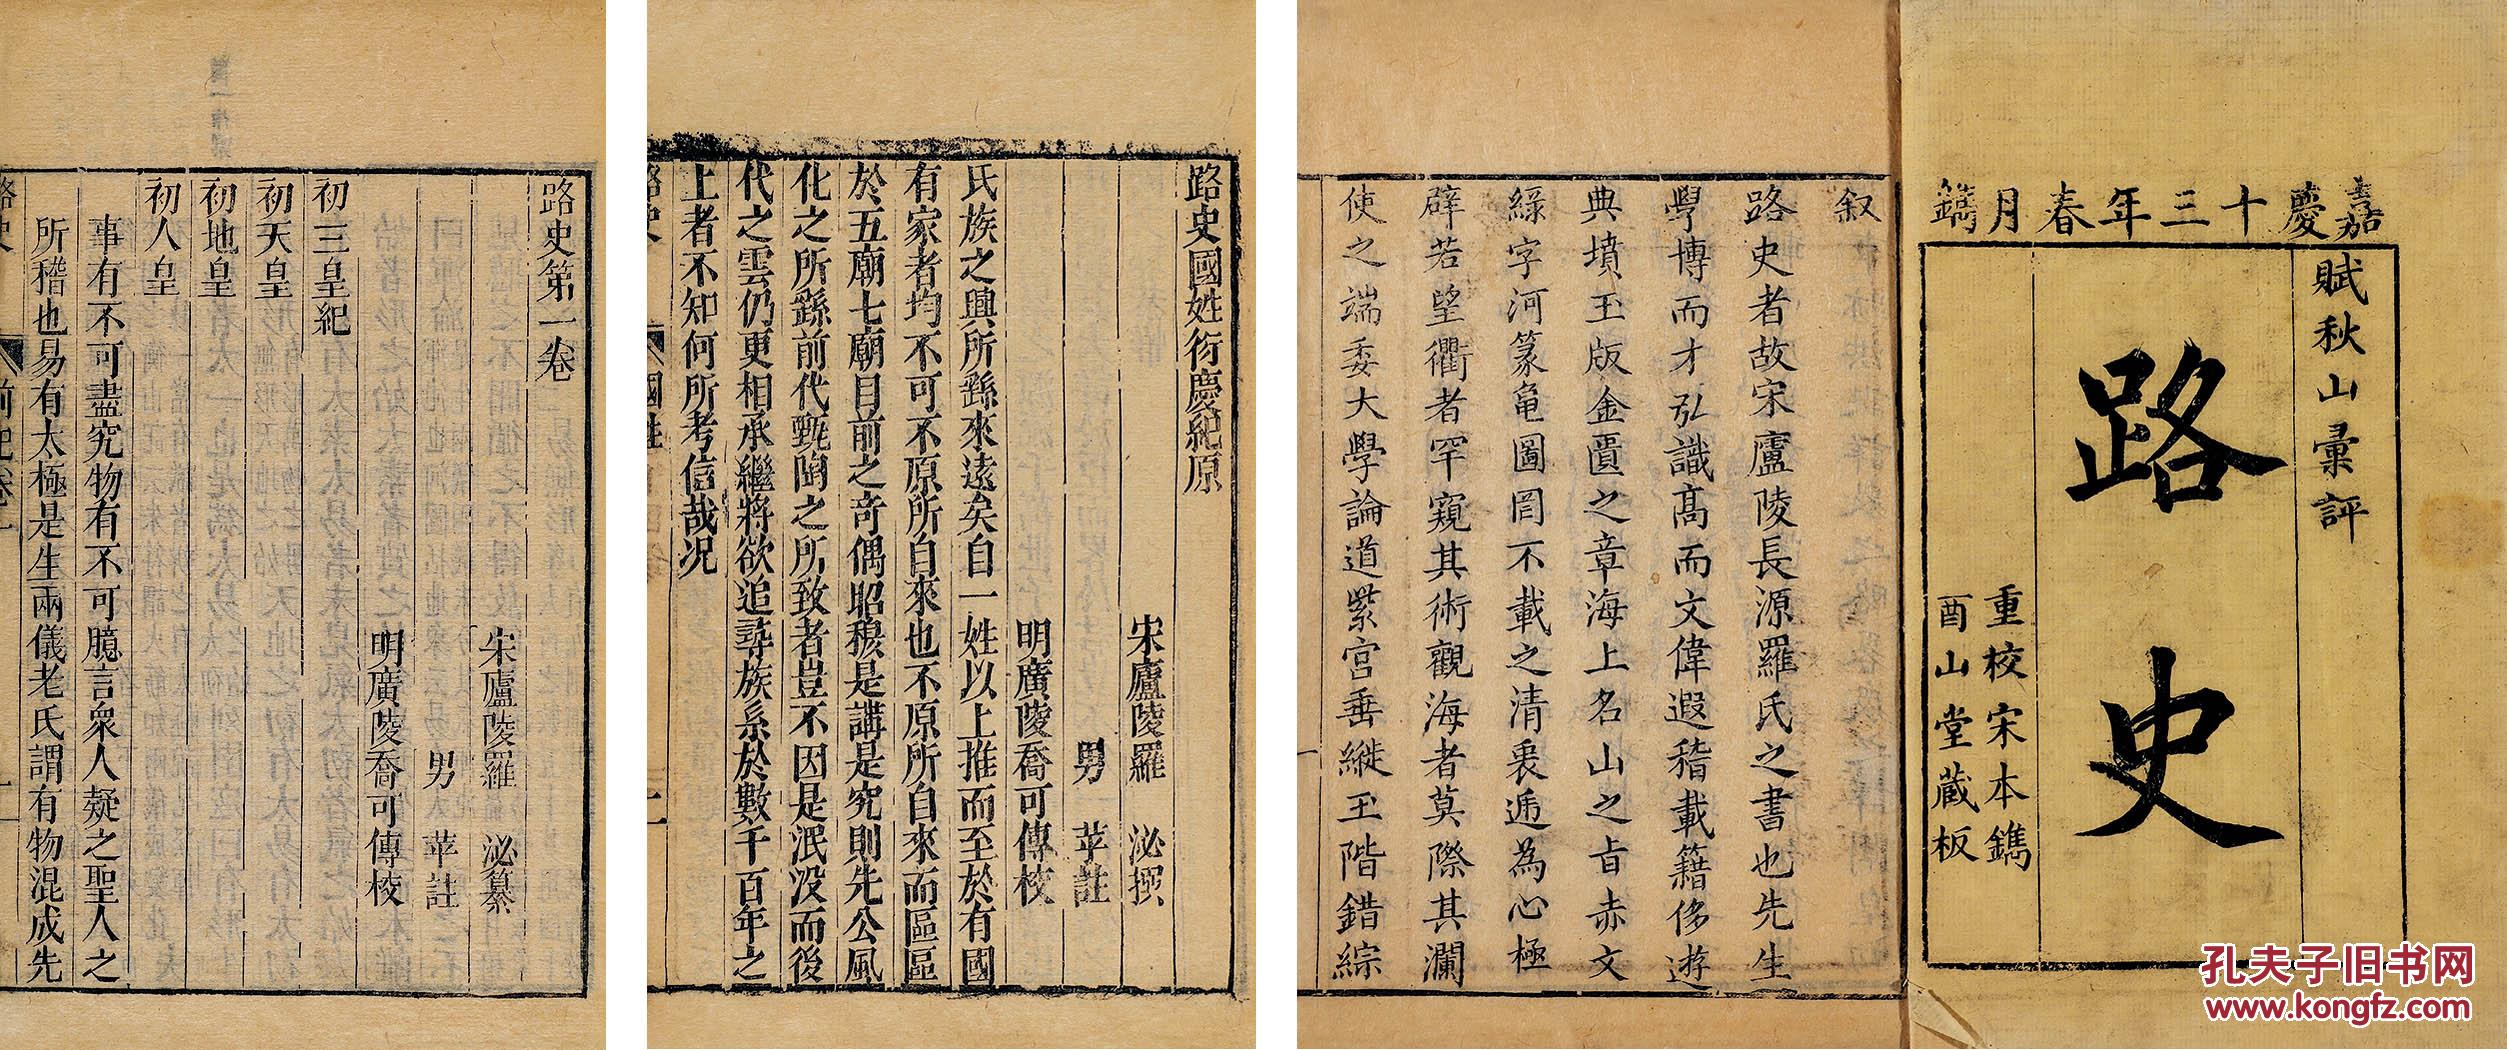 嘉慶十三年春月鐫
賦秋山彙評
路史
重校宋本鐫
酉山堂藏板
叙
路史者故宋廬陵長源羅氏之書也先生
學博而才弘識高而文偉遐稽載籍侈遊
典墳玉版金匱之章海上名山之旨赤文
綠字河篆龜圖罔不載之清裏逓為心極
辟若望衢者罕窺其術觀海者莫際其瀾
使之端委大學論道紫宫垂縰玉階錯綜
一
路史國姓衍慶紀原
宋廬陵羅 泌撰
男 苹註
明廣陵喬可傳校
氏族之興所繇來遠矣自一姓以上推而至於有國
有家者均不可不原所自來也不原所自來而區區
於五廟七廟目前之奇偶昭穆是講是究則先公風
化之所繇前代甄陶之所致者豈不因是泯没而後
代之雲仍更相承繼將欲追尋族系於數千百年之
上者不知何所考信哉况
路史
國姓
一
路史第一卷
宋廬陵羅 泌纂
男 苹註
明廣陵喬可傳校
初三皇紀
初天皇
初地皇
初人皇
事有不可盡究物有不可臆言衆人疑之聖人之
所稽也易有太極是生兩儀老氏謂有物混成先
路史
前紀卷一
一
孔夫子旧书网
www.kongfz.com